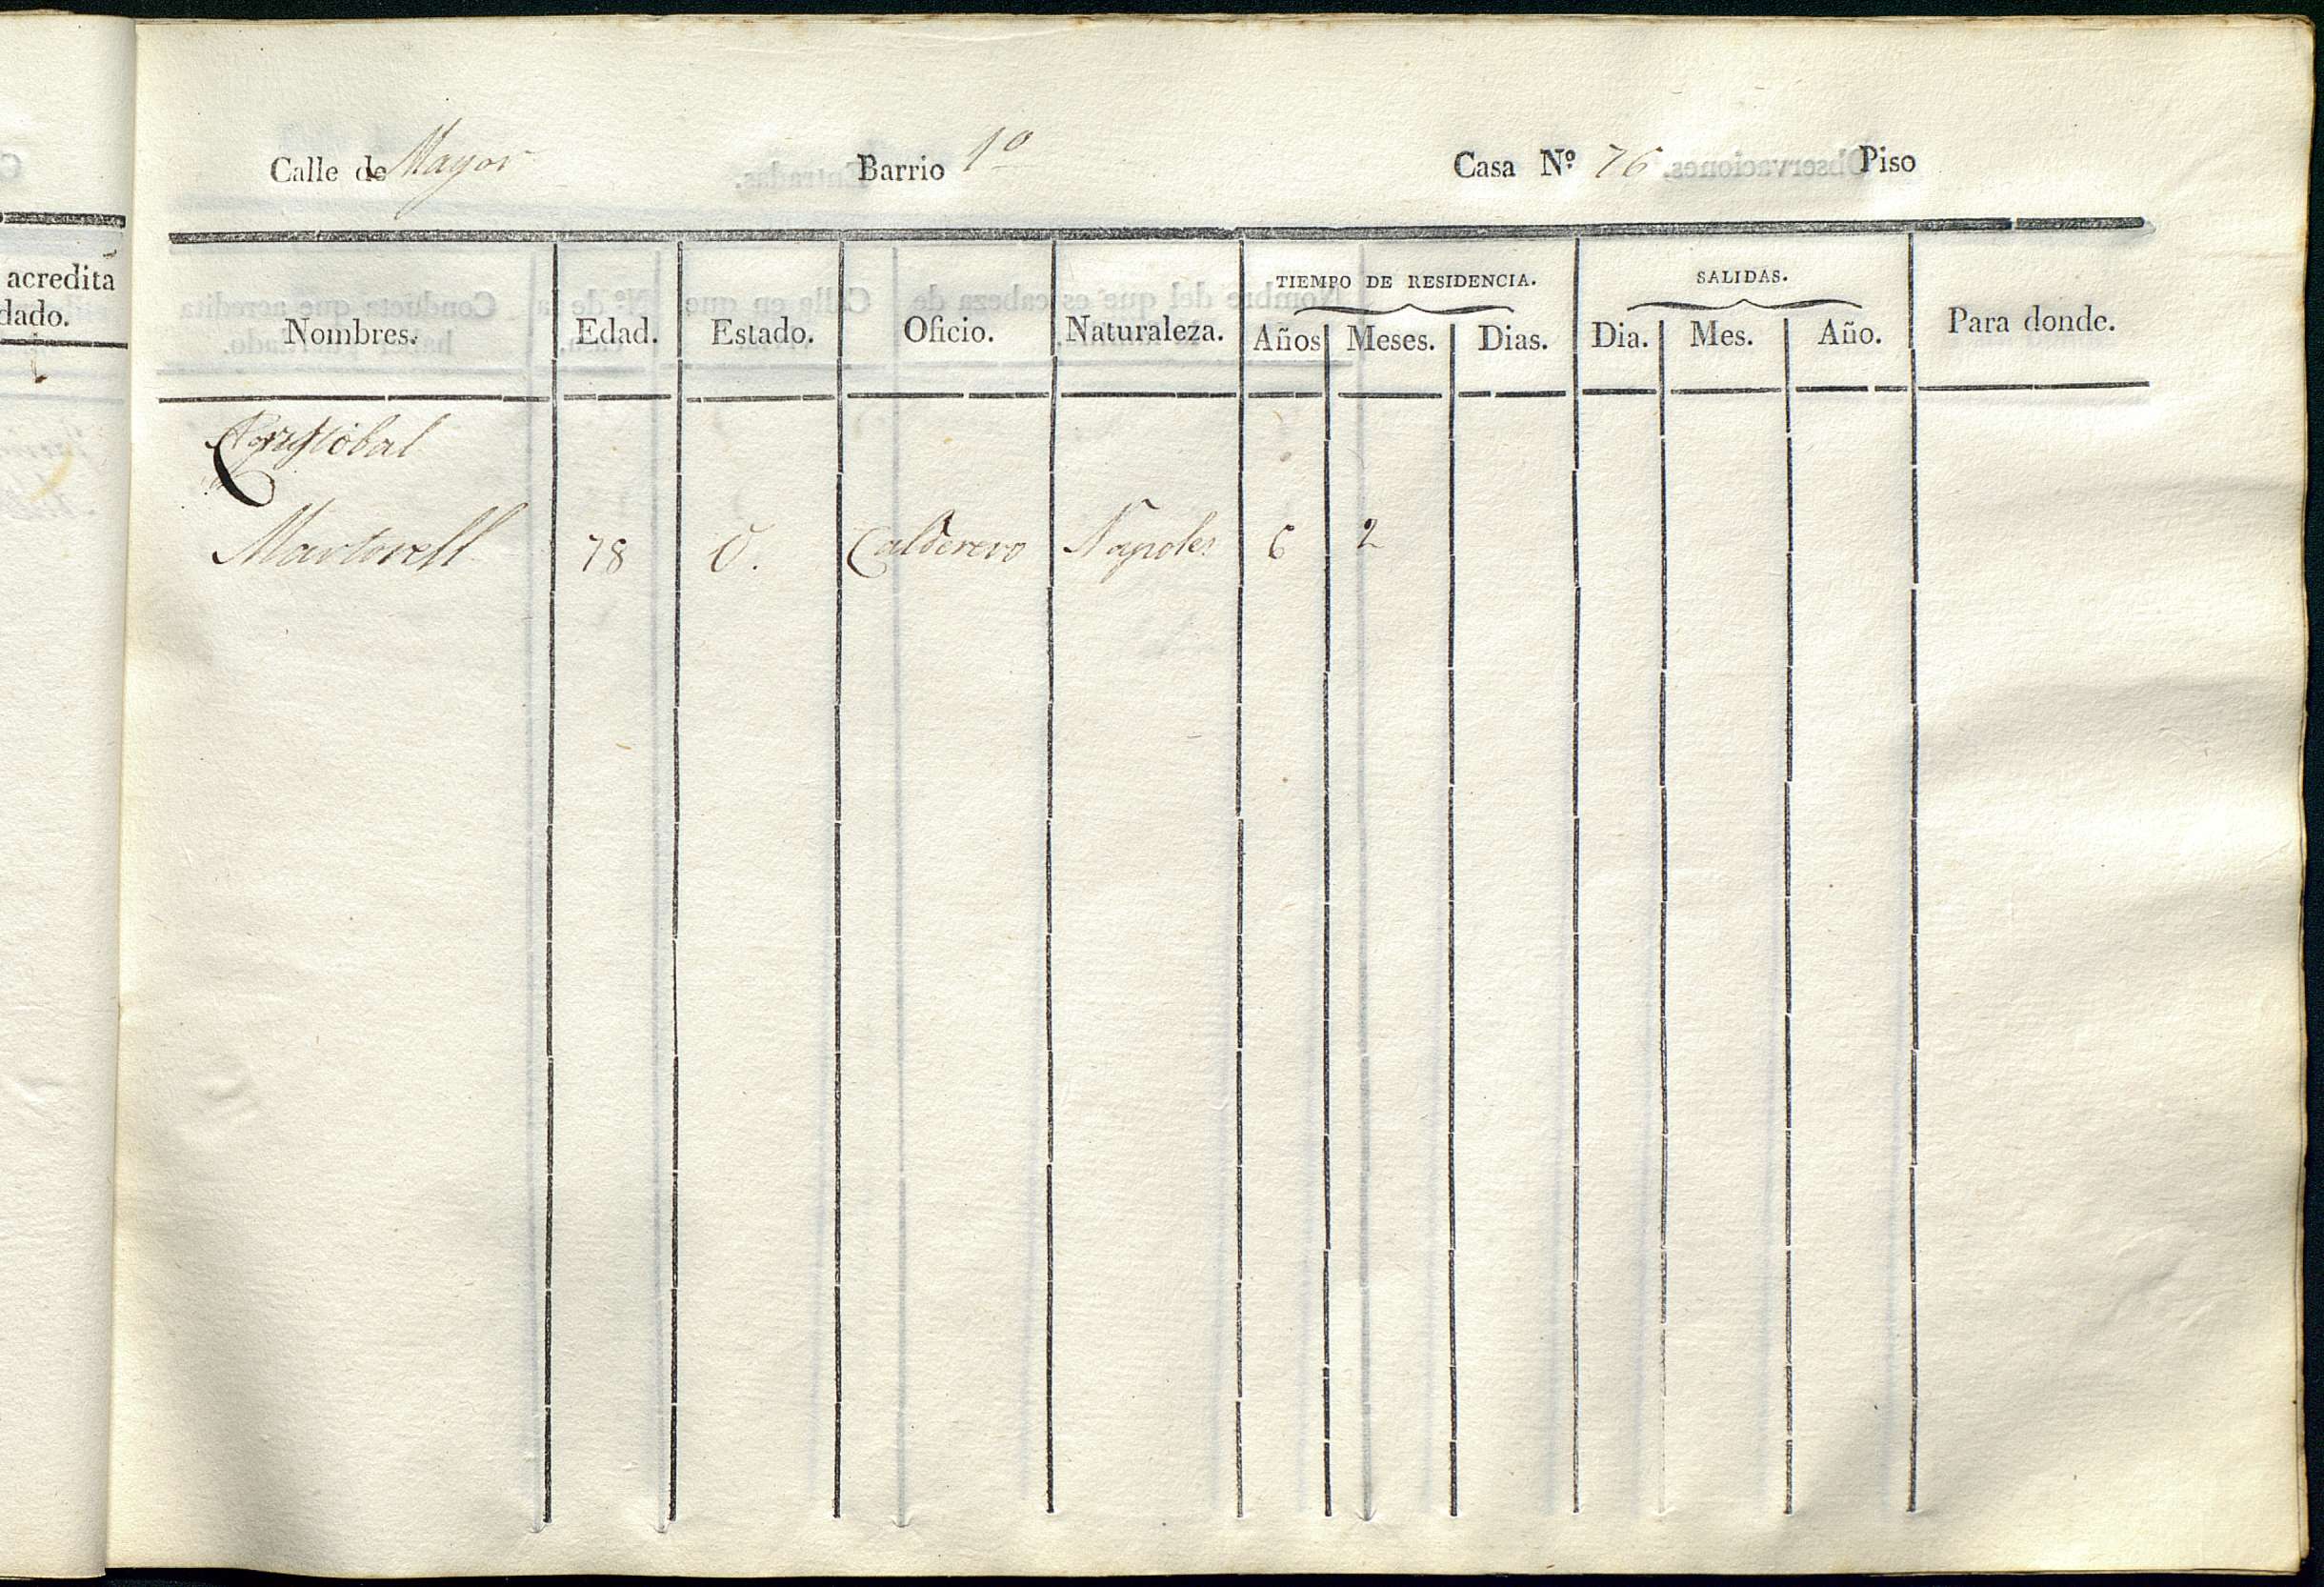 acredita
dado.
Calle de Mayor Barrio 1º Casa Nº 76 Piso
TIEMPO DE RESIDENCIA. SALIDAS.
Nombres. Edad. Estado. Oficio. Naturaleza. Años Meses. Dias. Dia. Mes. Año. Para donde.
Cristobal
Martorell 78 V. Calderero Napoles 6 2